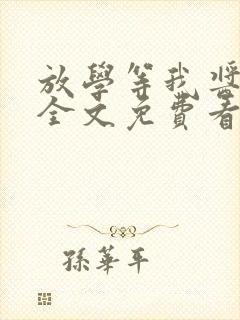 放學等我 醬
全文免費看
孫華平